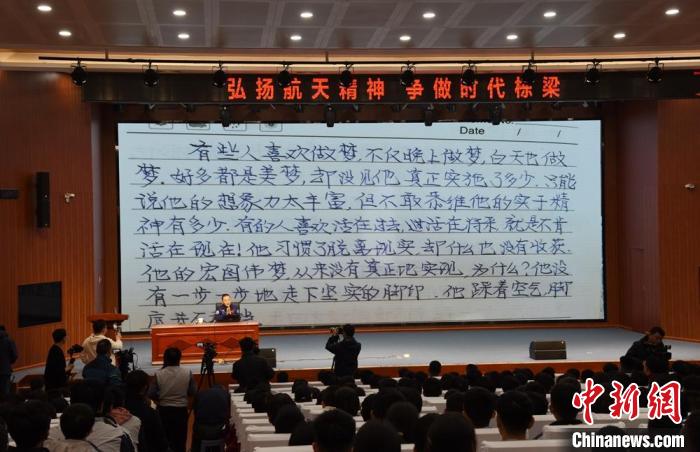 弘扬航天精神 争做时代栋梁
Date / /
有些人喜欢做梦，不仅晚上做梦，白天也做
梦，好多都是美梦，却没见他真正实施了多少，只能
说他的想象力太丰富，但不敢恭维他的实干精
神有多少。有的人喜欢活在过去，或活在将来，就是不肯
活在现在！他习惯了脱离现实，却什么也没有收获，
他的宏图伟梦从来没有真正地实现，为什么？他没
有一步一步地走下坚实的脚印，他踩着空气，脚
中新网
Chinanews.com